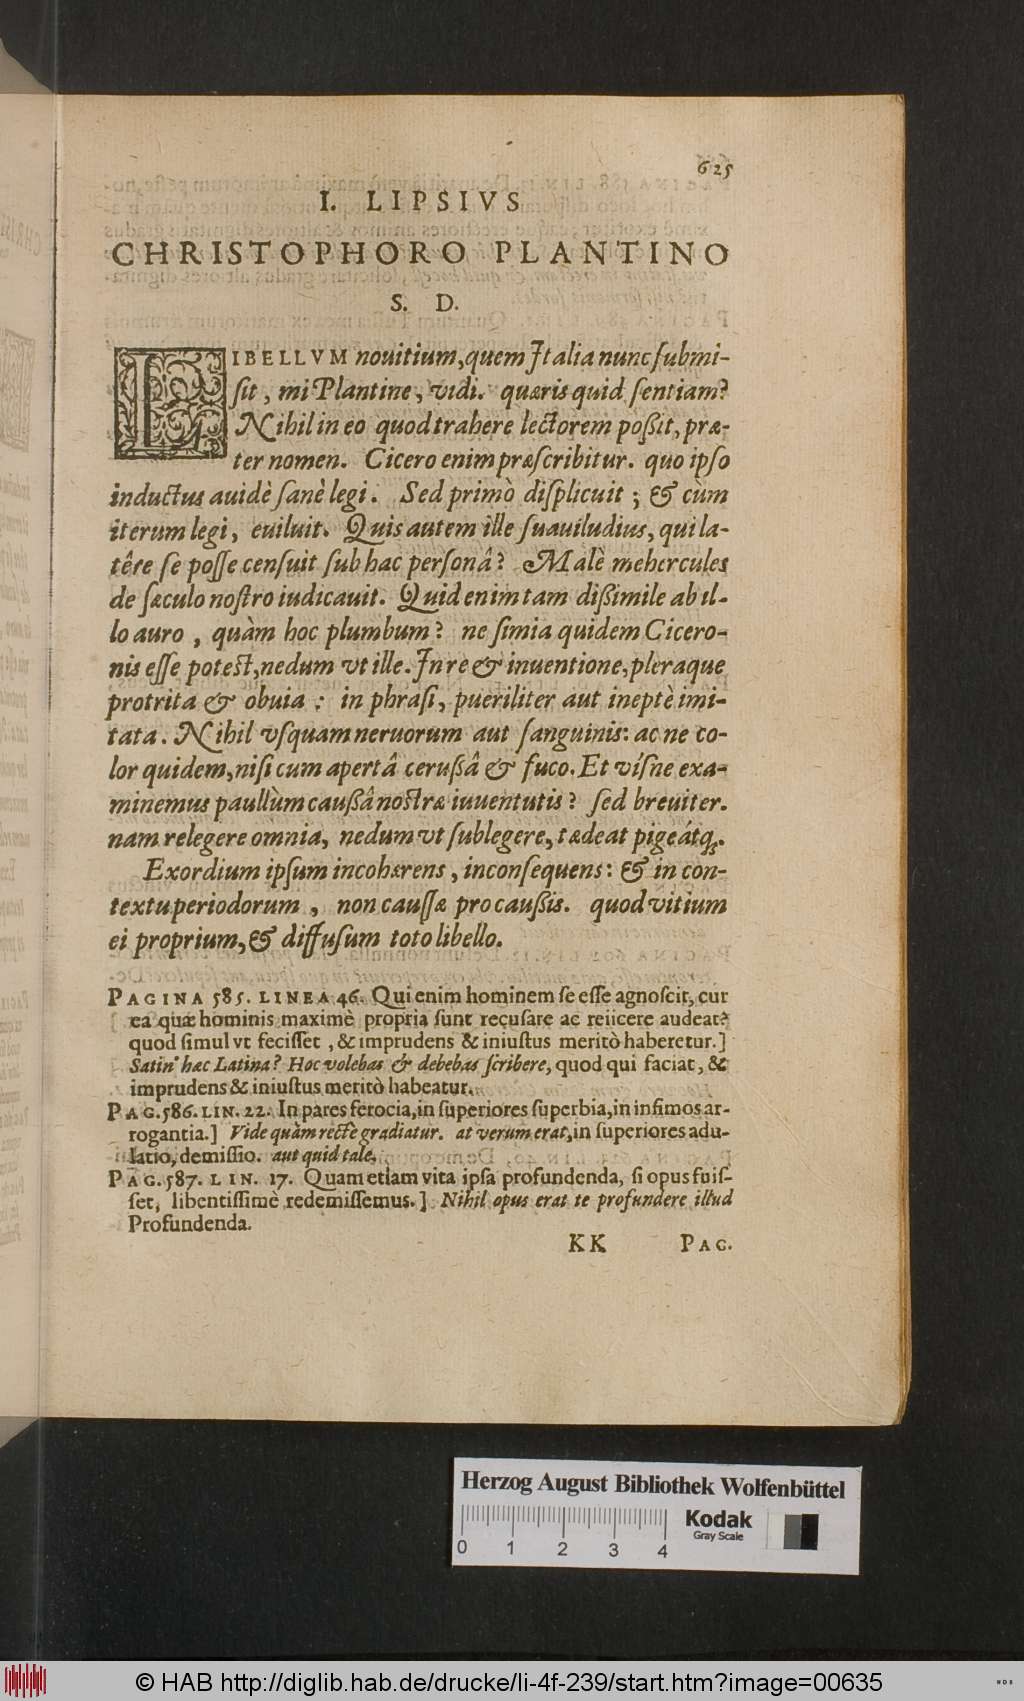 625
I. LIPSIVS
CHRISTOPHORO PLANTINO
S. D.
LIBELLVM nouitium, quem Italia nunc submi-
sit, mi Plantine, vidi. quæris quid sentiam?
Nihil in eo quod trahere lectorem poßit, præ-
ter nomen. Cicero enim præscribitur. quo ipso
inductus auidè sanè legi. Sed primò displicuit; & cùm
iterum legi, euiluit. Quis autem ille suauiludius, qui la-
têre se posse censuit sub hac personâ? Malè mehercules
de sæculo nostro iudicauit. Quid enim tam dißimile ab il-
lo auro, quàm hoc plumbum? ne simia quidem Cicero-
nis esse potest, nedum vt ille. In re & inuentione, pleraque
protrita & obuia: in phrasi, pueriliter aut ineptè imi-
tata. Nihil vsquam neruorum aut sanguinis: ac ne co-
lor quidem, nisi cum apertâ cerußâ & fuco. Et vísne exa-
minemus paullùm caußâ nostræ iuuentutis? sed breuiter.
nam relegere omnia, nedum vt sublegere, tædeat pigeátq;.
Exordium ipsum incohærens, inconsequens: & in con-
textu periodorum, non caussæ pro caußis. quod vitium
ei proprium, & diffusum toto libello.
PAGINA 585. LINEA 46. Qui enim hominem se esse agnoscit, cur
ea quæ hominis maximè propria sunt recusare ac reiicere audeat?
quod simul vt fecisset, & imprudens & iniustus meritò haberetur.]
Satin' hæc Latina? Hoc volebas & debebas scribere, quod qui faciat, &
imprudens & iniustus meritò habeatur.
PAG. 586. LIN. 22. In pares ferocia, in superiores superbia, in infimos ar-
rogantia.] Vide quàm rectè gradiatur. at verum erat, in superiores adu-
latio, demissio. aut quid tale.
PAG. 587. LIN. 17. Quam etiam vita ipsa profundenda, si opus fuis-
set, libentissimè redemissemus.] Nihil opus erat te profundere illud
Profundenda.
KK PAG.
Herzog August Bibliothek Wolfenbüttel
Kodak
Gray Scale
0 1 2 3 4
© HAB http://diglib.hab.de/drucke/li-4f-239/start.htm?image=00635